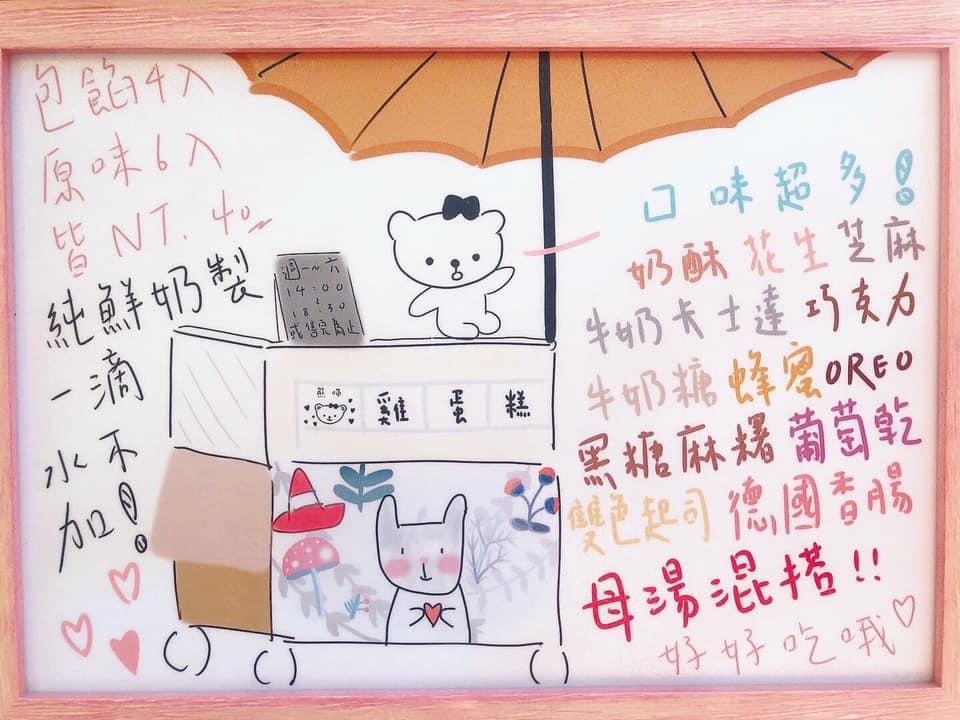 包餡4入
原味6入
皆NT.40
純鮮奶製
一滴
水不
加!
週一~六
14:00
~
18:30
或售完為止
熊喵
雞蛋糕
口味超多!
奶酥 花生 芝麻
牛奶卡士達 巧克力
牛奶糖 蜂蜜 OREO
黑糖麻糬 葡萄乾
雙色起司 德國香腸
母湯混搭!!
好好吃哦